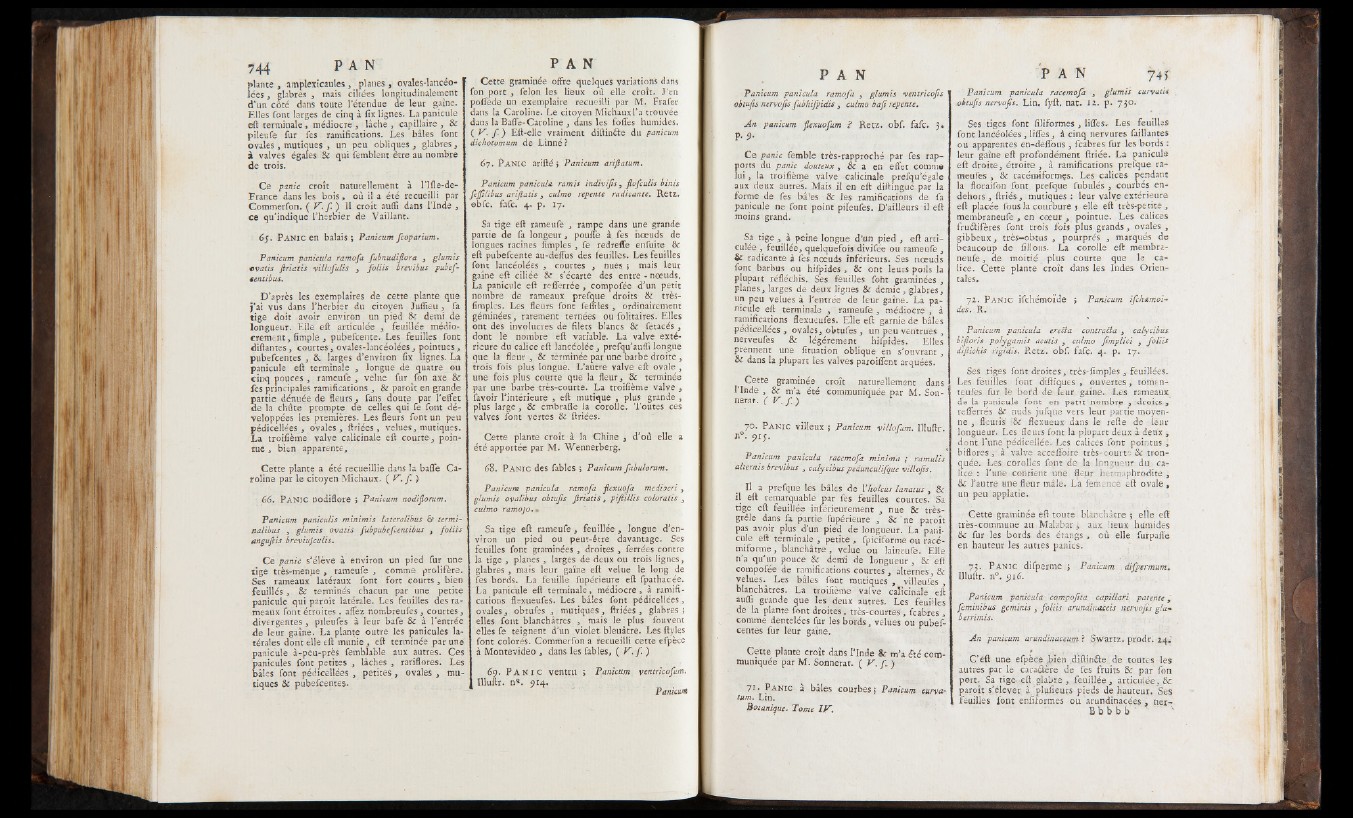 744 PAN
plante, amplexicaules, planes, ovales-lancéo-
lées, glabres, mais ciliées longitudinalement
d'un côté dans toute l'étendue de leur gaîne.
Elles sont larges de cinq à six lignes. La panicule
est terminale, médiocre, lâche, capillaire, &
pileuse sur ses ramifications. Les bâles sont
ovales, mutiques, un peu obliques, glabres,
à valves égales & qui semblent être au nombre
de trois.
Ce panic croît naturellement à l'Isle-de-
France dans les bois, où il a été recueilli par
Commerson. (V. s.) Il croît aussi dans l'Inde,
ce qu'indique l'herbier de Vaillant.
65. PANIC en balais; Panicum scoparium.
Panicum panicula ramosa subnudiflora, glumis
ovatis striatis villosulis, foliis brevibus pubes-
centibus.
D'après les exemplaires de cette plante que
j'ai vus dans l'herbier du citoyen Jussieu, sa
tige doit avoir environ un pied & demi de
longueur. Elle est articulée, feuillée médio-
crement, simple, pubescente. Les feuilles sont
distantes, courtes, ovales-lancéolées, pointues,
pubescentes, & larges d'environ six lignes. La
panicule est terminale, longue de quatre ou
cinq pouces, rameuse, velue sur son axe &
ses principales ramifications, & paroît en grande
partie dénuée de fleurs, sans doute par l'effet
de la chûte prompte de celles qui se sont dé-
veloppées les premières. Les fleurs sont un peu
pédicellées, ovales, striées, velues, mutiques.
La troisième valve calicinale est courte, poin-
tue, bien apparente,
Cette plante a été recueillie dans la basse Ca-
roline par le citoyen Michaux. (V. s.)
66. PANIC nodiflore; Panicum nodiflorum.
Panicum paniculis minimis lateralibus & termi-
nalibus, glumis ovatis subpubescentibus, foliis
angustis breviusculis.
Ce panic s'élève à environ un pied sur une
tige très-menue, rameuse, comme prolifère.
Ses rameaux latéraux sont fort courts, bien
feuillés, & terminés chacun par une petite
panicule qui paroît latérale. Les feuilles des ra-
meaux sont étroites, assez nombreuses, courtes,
divergentes, pileuses à leur base & à l'entrée
de leur gaîne. La plante outre les panicules la-
térales dont elle est munie, est terminée par une
panicule à-peu-près semblable aux autres. Ces
panicules sont petites, lâches, rariflores. Les
bâles sont pédicellées, petites, ovales, mu-
tiques & pubescentes.
PAN
Cette graminée offre quelques variations dans
son port, selon les lieux où elle croît. J'en
possède un exemplaire recueilli par M. Fraser
dans la Caroline. Le citoyen Michaux l'a trouvée
dans la Basse-Caroline, dans les fosses humides.
(V. s.) Est-elle vraiment distincte du panicum
dichotomum de Linné?
67. PANIC aristé; Panicum aristatum.
Panicum panicula ramis indivisis, flosculis binis
sessilibus aristatis, culmo repente radicante. Retz.
obsc. fasc. 4. p. 17.
Sa tige est rameuse, rampe dans une grande
partie de sa longeur, pousse à ses nœuds de
longues racines simples, se redresse ensuite &
est pubescente au-dessus des feuilles. Les feuilles
sont lancéolées, courtes, nues; mais leur
gaîne est ciliée & s'écarte des entre-nœuds.
La panicule est resserrée, composée d'un petit
nombre de rameaux presque droits & très-
simples. Les fleurs sont sessiles, ordinairement
géminées, rarement ternées ou solitaires. Elles
ont des involucres de filets blancs & setacés,
dont le nombre est variable. La valve exté-
rieure du calice est lancéolée, presqu'aussi longue
que la fleur, & terminée par une barbe droite,
trois fois plus longue. L'autre valve est ovale,
une fois plus courte que la fleur, & terminée
par une barbe très-courte. La troisième valve,
savoir l'intérieure, est mutique, plus grande,
plus large, & embrasse la corolle. Toutes ces
valves sont vertes & striées.
Cette plante croît à la Chine, d'où elle a
été apportée par M. Wennerberg.
68. PANIC des sables; Panicum sabulorum.
Panicum panicula ramosa flexuosa mediocri,
glumis ovalibus obtusis striatis, pistillis coloratis,
culmo ramoso.
Sa tige est rameuse, feuillée, longue d'en-
viron un pied ou peut-être davantage. Ses
feuilles sont graminées, droites, serrées contre
la tige, planes, larges de deux ou trois lignes,
glabres, mais leur gaîne est velue le long de
ses bords. La feuille supérieure est spathacée.
La panicule est terminale, médiocre, à ramifi-
cations flexueuses. Les bâles sont pédicellées,
ovales, obtuses, mutiques, striées, glabres;
elles sont blanchâtres, mais le plus souvent
elles se teignent d'un violet bleuâtre. Les styles
sont colorés. Commerson a recueilli cette espèce
à Montevideo, dans les sables. (V. s.)
69. PANIC ventru; Panicum ventricosum.
Illustr. n°. 914.
Panicum
PAN
Panicum panicula ramosa, glumis ventricosis
obtusis nervosis subhispidis, culmo basi repente.
An panicum flexuosum? Retz. obs. fasc. 3.
p. 9.
Ce panic semble très-rapproché par ses rap-
ports du panic douteux, & a en effet comme
lui, la troisième valve calicinale presqu'égale
aux deux autres. Mais il en est distingué par la
forme de ses bâles & les ramifications de sa
panicule ne sont point pileuses. D'ailleurs il est
moins grand.
Sa tige, à peine longue d'un pied, est arti-
culée, feuillée, quelquefois divisée ou rameuse,
& radicante à ses nœuds inférieurs. Ses nœuds
sont barbus ou hispides, & ont leurs poils la
plupart réfléchis. Ses feuilles sont graminées,
planes, larges de deux lignes & demie, glabres,
un peu velues à l'entrée de leur gaîne. La pa-
nicule est terminale, rameuse, médiocre, à
ramifications flexueuses. Elle est garnie de bâles
pédicellées, ovales, obtuses, un peu ventrues,
nerveuses & légèrement hispides. Elles
prennent une situation oblique en s'ouvrant,
& dans la plupart les valves paroissent arquées.
Cette graminée croît naturellement dans
l'Inde, & m'a été communiquée par M. Son-
nerat. (V. s.)
70. PANIC villeux; Panicum villosum. Illustr.
n°. 915.
Panicum panicula racemosa minima; ramulis
alternis brevibus, calycibus pedunculisque villosis.
Il a presque les bâles de l'holcus lanatus, &
il est remarquable par ses feuilles courtes. Sa
tige est feuillée inférieurement, nue & très-
grêle dans sa partie supérieure, & ne paroît
pas avoir plus d'un pied de longueur. La pani-
cule est terminale, petite, spiciforme ou racé-
miforme, blanchâtre, velue ou laineuse. Elle
n'a qu'un pouce & demi de longueur, & est
composée de ramifications courtes, alternes, &
velues. Les bâles sont mutiques, villeuses,
blanchâtres. La troisième valve calicinale est
aussi grande que les deux autres. Les feuilles
de la plante sont droites, très-courtes, scabres,
comme dentelées sur les bords, velues ou pubes-
centes sur leur gaîne.
Cette plante croît dans l'Inde & m'a été com-
muniquée par M. Sonnerat. (V. s.)
71. PANIC à bâles courbes; Panicum curva-
tum. Lin.
Botanique. Tome IV.
PAN 745
Panicum panicula racemosa, glumis curvatis
obtusis nervosis. Lin. syst. nat. 12. p. 730.
Ses tiges sont filiformes, lisses. Les feuilles
sont lancéolées, lisses, à cinq nervures saillantes
ou apparentes en-dessous, scabres sur les bords:
leur gaîne est profondément striée. La panicule
est droite, étroite, à ramifications presque ra-
meuses, & racémiformes. Les calices pendant
la floraison sont presque subulés, courbés en-
dehors, striés, mutiques: leur valve extérieure
est placée sous la courbure; elle est très-petite,
membraneuse, en cœur, pointue. Les calices
fructifères sont trois fois plus grands, ovales,
gibbeux, très-obtus, pourprés, marqués de
beaucoup de sillons. La corolle est membra-
neuse, de moitié plus courte que le ca-
lice. Cette plante croît dans les Indes Orien-
tales.
72. PANIC ischémoïde; Panicum ischæmoi-
des. R.
Panicum panicula erecta contracta, calycibus
bifloris polygamis acutis, culmo simplici, foliis
distichis rigidis. Retz. obs. fasc. 4. p. 17.
Ses tiges sont droites, très-simples, feuillées.
Les feuilles sont distiques, ouvertes, tomen-
teuses sur le bord de leur gaîne. Les rameaux
de la panicule sont en petit nombre, droits,
resserrés & nuds jusque vers leur partie moyen-
ne, fleuris & flexueux dans le reste de leur
longueur. Les fleurs sont la plupart deux à deux,
dont l'une pédicellée. Les calices sont pointus,
biflores, à valve accessoire très-courte & tron-
quée. Les corolles sont de la longueur du ca-
lice: l'une contient une fleur hermaphrodite,
& l'autre une fleur mâle. La semence est ovale,
un peu applatie.
Cette graminée est toute blanchâtre; elle est
très-commune au Malabar; aux lieux humides
& sur les bords des étangs, où elle surpasse
en hauteur les autres panics.
73. PANIC disperme; Panicum dispermum.
Illustr. n°. 916.
Panicum panicula composita capillari patente,
seminibus geminis, foliis arundinaceis nervosis gla-
berrimis.
An panicum arundinaceum? Swartz. prodr. 24.
C'est une espèce bien distincte de toutes les
autres par le caractère de ses fruits & par son
port. Sa tige est glabre, feuillée, articulée, &
paroît s'élever à plusieurs pieds de hauteur. Ses
feuilles sont ensiformes ou arundinacées, ner-
Bbbbb